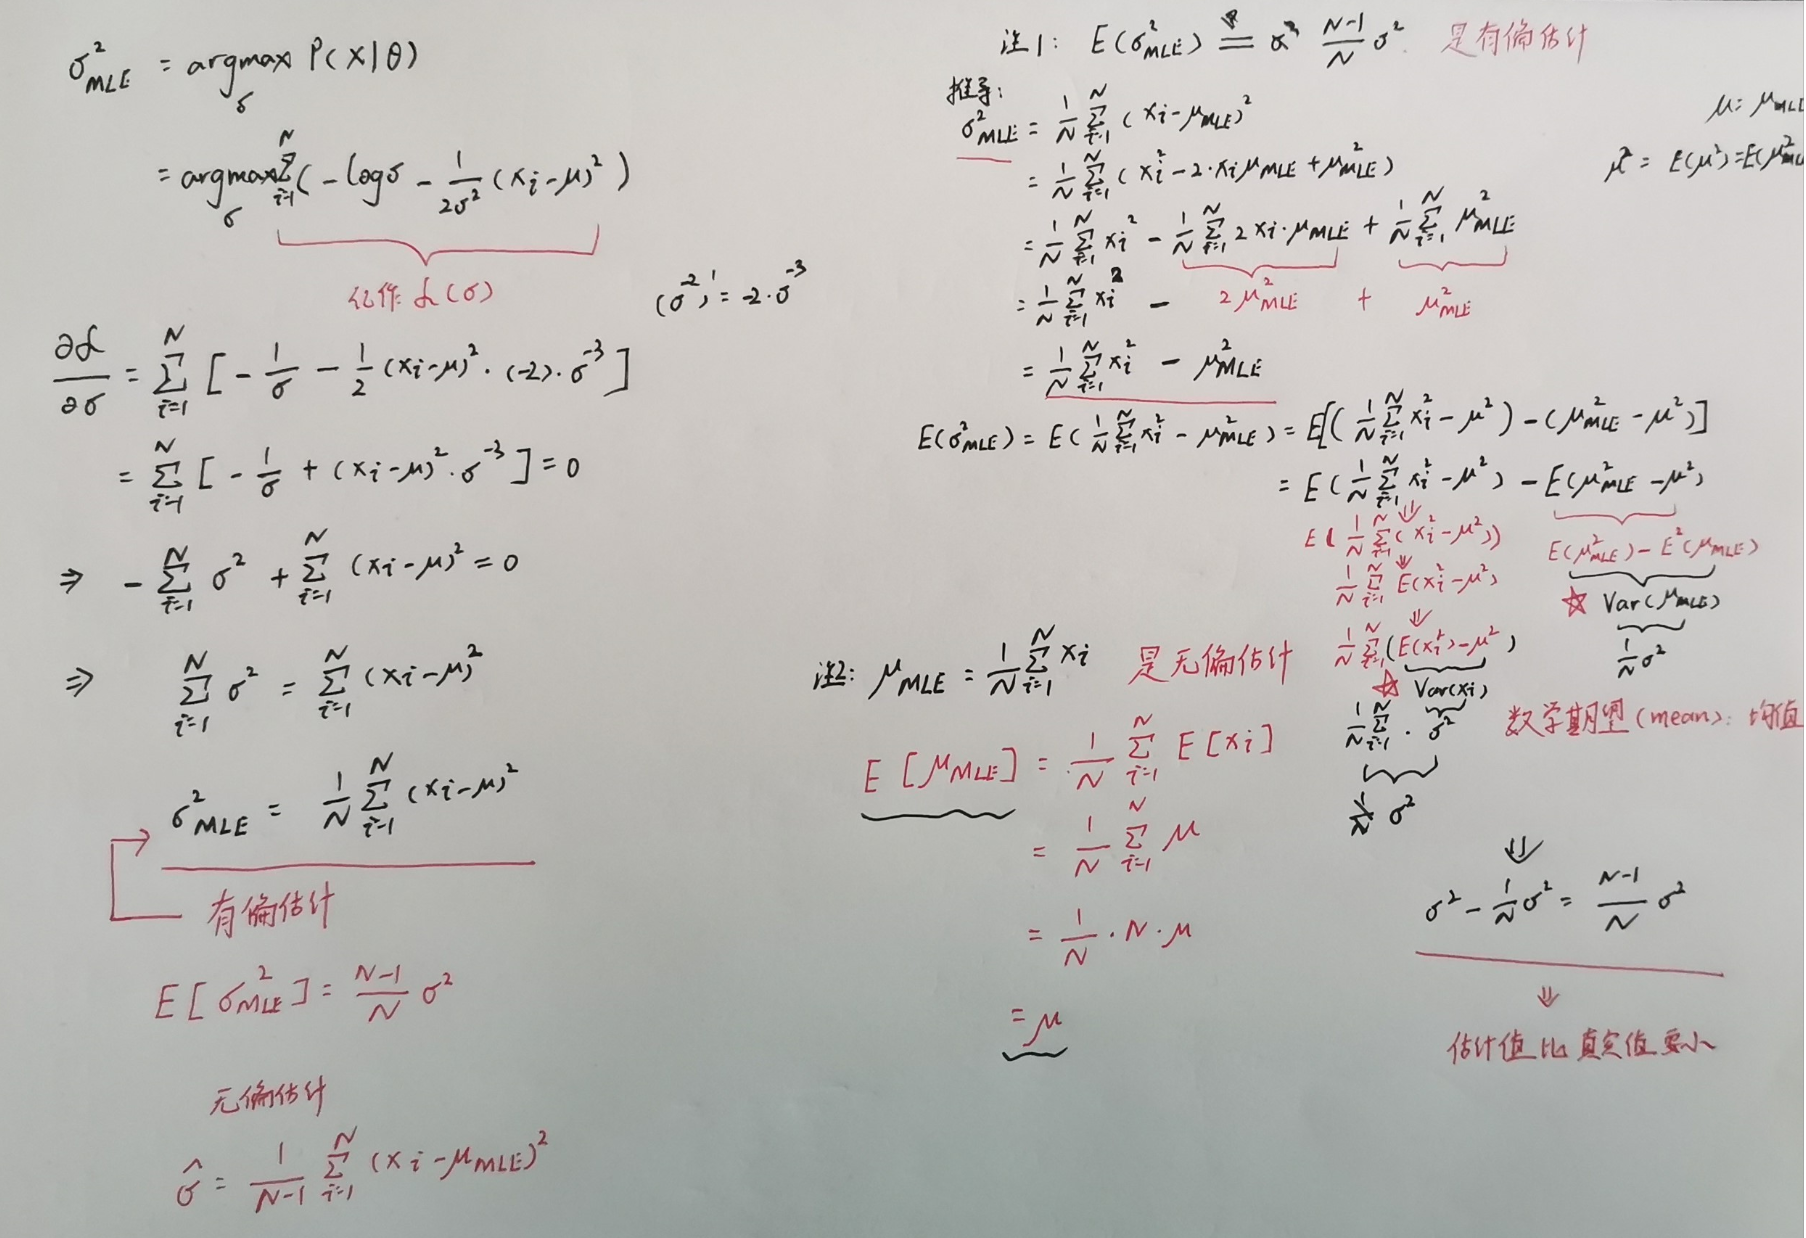 σ²_MLE = argmax_σ P(X|θ)
= argmax_σ Σ_{i=1}^{N} (-logσ - 1/2σ² (xi-μ)²)
记作 L(σ)
(σ^{-2})' = -2·σ^{-3}
∂L/∂σ = Σ_{i=1}^{N} [ - 1/σ - 1/2 (xi-μ)²·(-2)·σ^{-3} ]
= Σ_{i=1}^{N} [ - 1/σ + (xi-μ)²·σ^{-3} ] = 0
⇒ - Σ_{i=1}^{N} σ² + Σ_{i=1}^{N} (xi-μ)² = 0
⇒ Σ_{i=1}^{N} σ² = Σ_{i=1}^{N} (xi-μ)²
σ²_MLE = 1/N Σ_{i=1}^{N} (xi-μ)²
有偏估计
E[σ²_MLE] = N-1/N σ²
无偏估计
σ̂ = 1/N-1 Σ_{i=1}^{N} (xi-μ_MLE)²
注1: E(σ²_MLE) = N-1/N σ² 是有偏估计
推导:
σ²_MLE = 1/N Σ_{i=1}^{N} (xi-μ_MLE)²
= 1/N Σ_{i=1}^{N} (xi²-2·xiμ_MLE+μ²_MLE)
= 1/N Σ_{i=1}^{N} xi² - 1/N Σ_{i=1}^{N} 2xi·μ_MLE + 1/N Σ_{i=1}^{N} μ²_MLE
= 1/N Σ_{i=1}^{N} xi² - 2μ²_MLE + μ²_MLE
= 1/N Σ_{i=1}^{N} xi² - μ²_MLE
E(σ²_MLE) = E(1/N Σ_{i=1}^{N} xi² - μ²_MLE) = E[(1/N Σ_{i=1}^{N} xi²-μ²) - (μ²_MLE-μ²)]
= E(1/N Σ_{i=1}^{N} xi²-μ²) - E(μ²_MLE-μ²)
⇓
E(1/N Σ_{i=1}^{N} (xi²-μ²))
⇓
1/N Σ_{i=1}^{N} E(xi²-μ²)
⇓
1/N Σ_{i=1}^{N} (E(xi²)-μ²)
☆ Var(xi)
1/N Σ_{i=1}^{N} · σ²
σ²
E(μ²_MLE) - E²(μ_MLE)
☆ Var(μ_MLE)
1/N σ²
数学期望(mean): 均值
⇓
σ² - 1/N σ² = N-1/N σ²
⇓
估计值比真实值要小
注2: μ_MLE = 1/N Σ_{i=1}^{N} xi 是无偏估计
E[μ_MLE] = 1/N Σ_{i=1}^{N} E[xi]
= 1/N Σ_{i=1}^{N} μ
= 1/N · N · μ
= μ